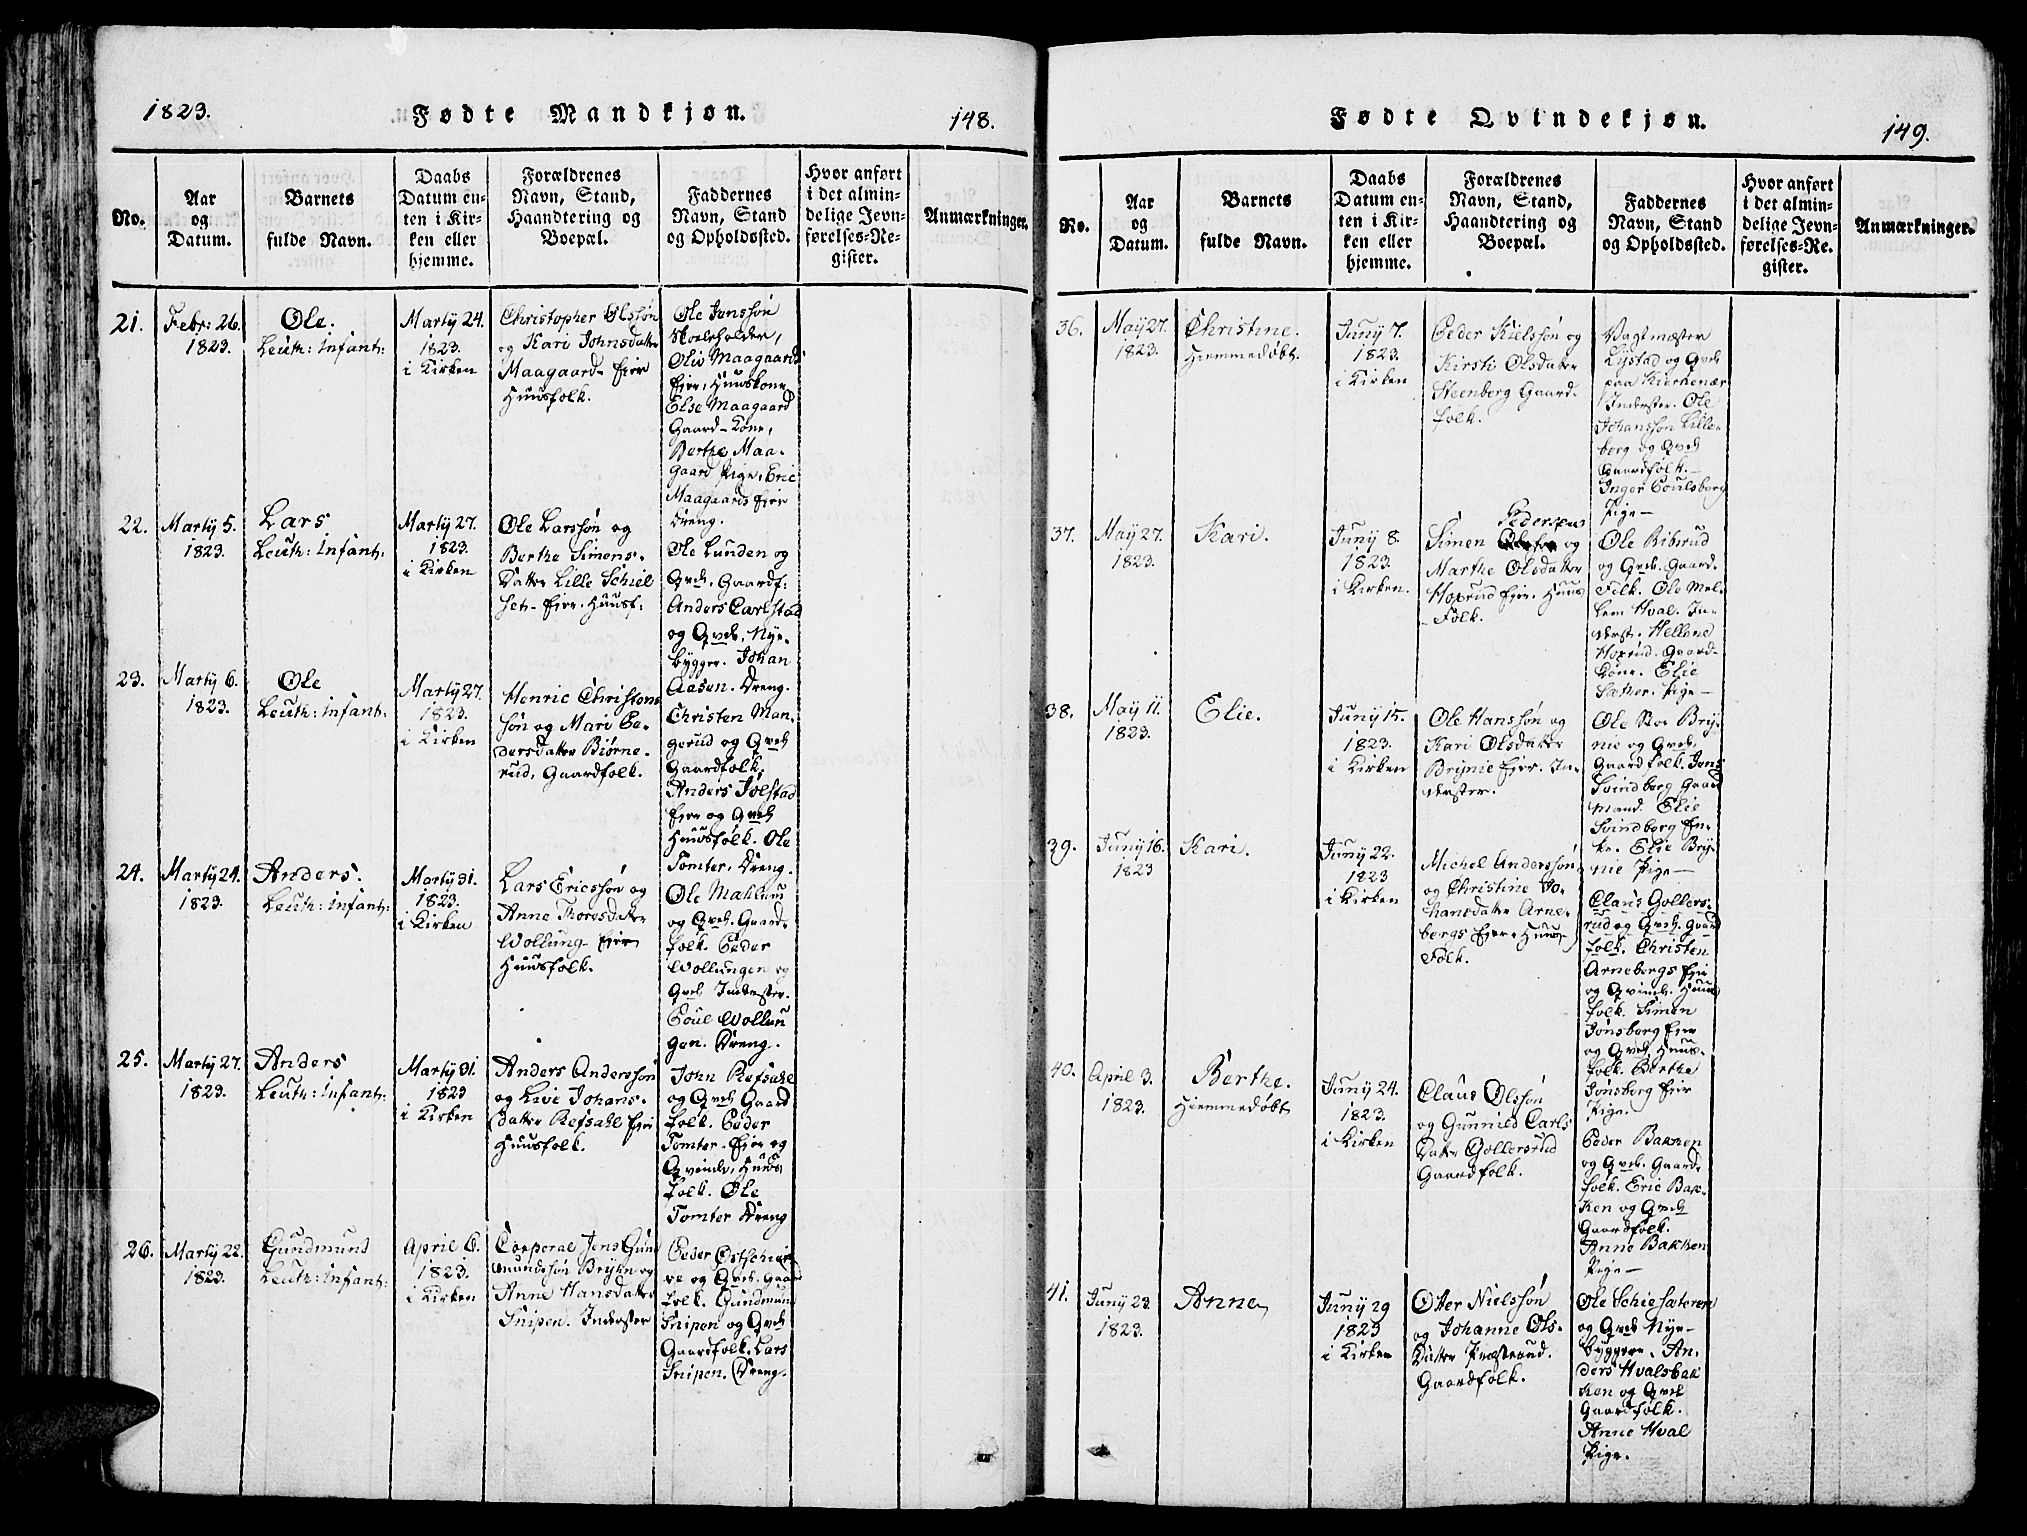 1823.
Fødte Mandkjøn.
148.
No.
Aar
og
Datum.
Barnets
fulde Navn.
Daabs
Datum en-
ten i Kir-
ken eller
hjemme.
Forældrenes
Navn, Stand,
Haandtering og
Boepæl.
Faddernes
Navn, Stand
og Opholdssted.
Hvor anført
i det almin-
delige Jevn-
førelses-Re-
gister.
Anmærkninger.
21.
Febr: 26.
1823.
Ole.
Leuth: Infant:
Martij 24.
1823.
i Kirken
Christopher Olssøn
og Kari Johnsdatter
Maagaard- Ejer
Huusfolk.
Ole Jonssøn
Skoleholder,
Olie Maagaards
Ejer, Huuskone
Else Maagaard
Gaard-Kone,
Berthe Maa-
gaard Pige, Eric
Maagaards Ejer
Dreng.
22.
Martij 5.
1823.
Lars
Leuth: Infant:
Martij 27.
1823.
i Kirken
Ole Larssøn og
Berthe Simens-
Datter Lille Schiel
set- Ejer. Huusf:
Ole Lunden og
Qvd. Gaardf:
Anders Carlstad
og Qvd, Nye-
bygger. Johan
Aasen. Dreng.
23.
Martij 6.
1823.
Ole
Leuth: Infant:
Martij 27.
1823.
i Kirken
Henric Christens
søn og Mari Pe-
dersdatter Biørne-
rud, Gaardfolk.
Christen Man-
gerud og Qvd
Gaardfolk,
Anders Jølstad
Ejer og Qvd
Huusfolk. Ole
Tomter, Dreng.
24.
Martij 24.
1823.
Anders.
Leuth: Infant:
Martij 31.
1823.
i Kirken
Lars Ericssøn og
Anne Thoresdatter
Wollung- Ejer
Huusfolk.
Ole Mahlum
og Qvd. Gaard-
folk. Peder
Wollungen og
Qvd Inderster.
Poul Wollun
gen. Dreng.
25.
Martij 27.
1823.
Anders
Leuth: Infant:
Martij 31.
1823
i Kirken
Anders Anderssøn
og Live Johans-
Datter Refsahl Ejer
Huusfolk.
John Refsahl
og Qvd Gaard
folk. Peder
Tomter- Ejer og
Qvinde, Huus
folk. Ole
Tomter Dreng
26.
Martij 22.
1823.
Gundmund
Leuth: Infant:
April 6.
1823.
i Kirken
Corporal Jens Gund
mundssøn Brijhn og
Anne Hansdatter
Snipen. Inderster
Peder
ve og Qvd. Gaard
folk. Gundmund
Snipen og Qvd
Gaardfolk. Lars
Snipen. Dreng.
Fødte Qvindekjøn.
149.
No.
Aar
og
Datum.
Barnets
fulde Navn.
Daabs
Datum en-
ten i Kir-
ken eller
hjemme.
Forældrenes
Navn, Stand,
Haandtering og
Boepæl.
Faddernes
Navn, Stand
og Opholdssted.
Hvor anført
i det almin-
delige Jevn-
førelses-Re-
gister.
Anmærkninger.
36.
Maij 27.
1823.
Christine.
Hiemmedøbt.
Junij 7.
1823.
i Kirken
Peder Kielssøn og
Kirsti Olsdatter
Steenborg Gaard-
folk.
Vagtmester
Lystad og Qvd
paa Kirkenær
Inderster. Ole
Johanssøn Lille-
borg og Qvd
Gaardfolk.-
Inger Poulsborg
Pige-
37.
Maij 27.
1823.
Kari.
Junij 8.
1823.
i Kirken.
Pedersen
Simen og
Marthe Olsdatter
Hoxrud Ejer. Huus
-Folk.
Ole Ribsrud
og Qvd. Gaard-
Folk. Ole Mel-
lem Hval. In-
derst. Hellene
Hoxrud. Gaard-
Kone. Elie
Sæther. Pige-
38.
Maij 11.
1823.
Elie.
Junij 15.
1823.
i Kirken
Ole Hanssøn og
Kari Olsdatter
Brijnie Ejer. In-
derster.
Ole Sto. Brij-
nie og Qvd.
Gaardfolk. Jens
Svindborg Gaard
mand. Elie
Svindborg En-
ke. Elie Brij-
nie Pige-
39.
Junij 16.
1823
Kari.
Junij 22.
1823
i Kirken
Michel Anderssøn
og Christine Jo-
hansdatter Arne-
bergs Ejer. Huus
Folk.
Claus Gollers-
rud og Qvd. Gaard
folk. Christen
Arnebergs Ejer
og Qvind. Huus
folk. Simen
Jønsborg Ejer
og Qvd, Huus-
folk. Berthe
Jønsborg Ejer
Pige.
40.
April 3.
1823.
Berthe.
Hiemmedøbt
Junij 24.
1823.
i Kirken
Claus Olssøn
og Gunnild Carls
Datter Gollersrud
Gaardfolk.
Peder Bakken
og Qvd. Gaard-
folk. Eric Bak-
ken og Qvd
Gaardfolk.
Anne Bakken
Pige-
41.
Junij 23.
1823.
Anne
Junij 29
1823
i Kirken
Otter Nielssøn
og Johanne Ols-
Datter Præsterud.
Gaardfolk.
Ole Schiesæteren
og Qvd Nye-
byggere. An-
ders Hvalsbak
ken og Qvd
Gaardfolk.
Anne Hval
Pige.